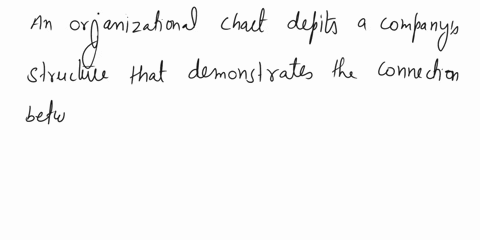 An organizational chart depits a company's
structure that demonstrates the connection
betw